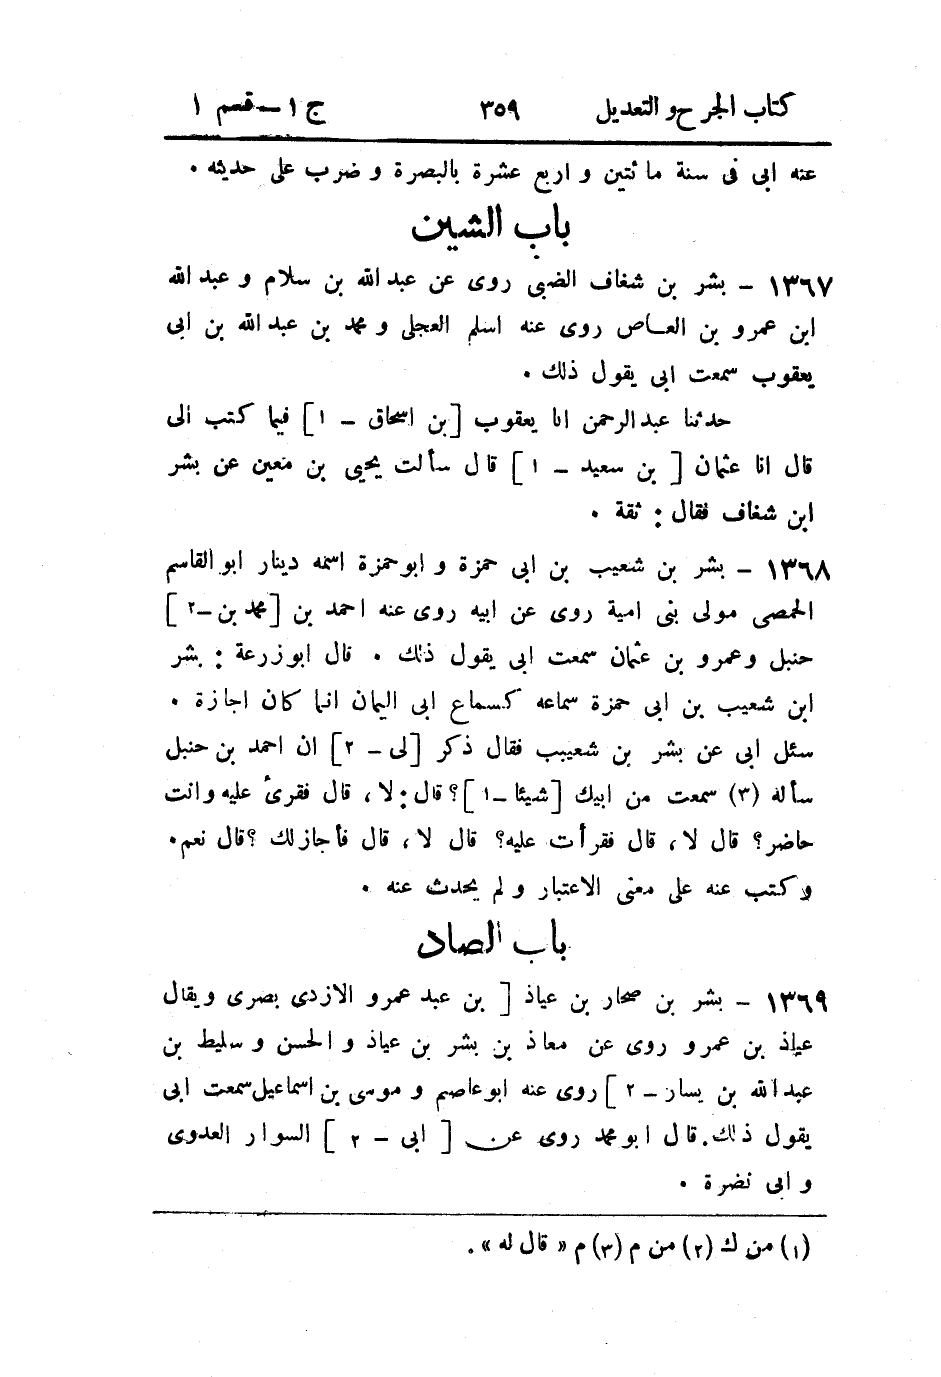 كتاب الجرح و التعديل ٣٥٩ ج ١ – قسم ١
عنه ابى فى سنة مائتين و اربع عشرة بالبصرة و ضرب على حديثه .
باب الشين
١٣٦٧ – بشر بن شغاف الضبى روى عن عبد الله بن سلام و عبد الله
ابن عمرو بن العاص روى عنه اسلم العجلى و محمد بن عبد الله بن ابى
يعقوب سمعت ابى يقول ذلك .
حدثنا عبد الرحمن انا يعقوب [بن اسحاق – ١] فيما كتب الى
قال انا عثمان [بن سعيد – ١] قال سألت يحيى بن معين عن بشر
ابن شغاف فقال : ثقة .
١٣٦٨ – بشر بن شعيب بن ابى حمزة و ابو حمزة اسمه دينار ابو القاسم
الحمصى مولى بنى امية روى عن ابيه روى عنه احمد بن [محمد بن – ٢]
حنبل و عمرو بن عثمان سمعت ابى يقول ذلك . قال ابو زرعة : بشر
ابن شعيب بن ابى حمزة سماعه كسماع ابى اليمان انما كان اجازة .
سئل ابى عن بشر بن شعيب فقال ذكر [لى – ٢] ان احمد بن حنبل
سأله (٣) سمعت من ابيك [شيئا – ١]؟ قال : لا، قال فقرئ عليه وانت
حاضر؟ قال لا، قال فقرأت عليه؟ قال لا، قال فأجاز لك؟ قال نعم.
و كتب عنه على معنى الاعتبار و لم يحدث عنه .
باب الصاد
١٣٦٩ – بشر بن صحار بن عياذ [بن عبد عمرو الازدى بصرى ويقال
عياذ بن عمرو روى عن معاذ بن بشر بن عياذ و الحسن و سليط بن
عبد الله بن يسار – ٢] روى عنه ابو عاصم و موسى بن اسماعيل سمعت ابى
يقول ذلك. قال ابو محمد روى عن [ابى – ٢] السوار العدوى
و ابى نضرة .
(١) من ك (٢) من م (٣) م « قال له ».